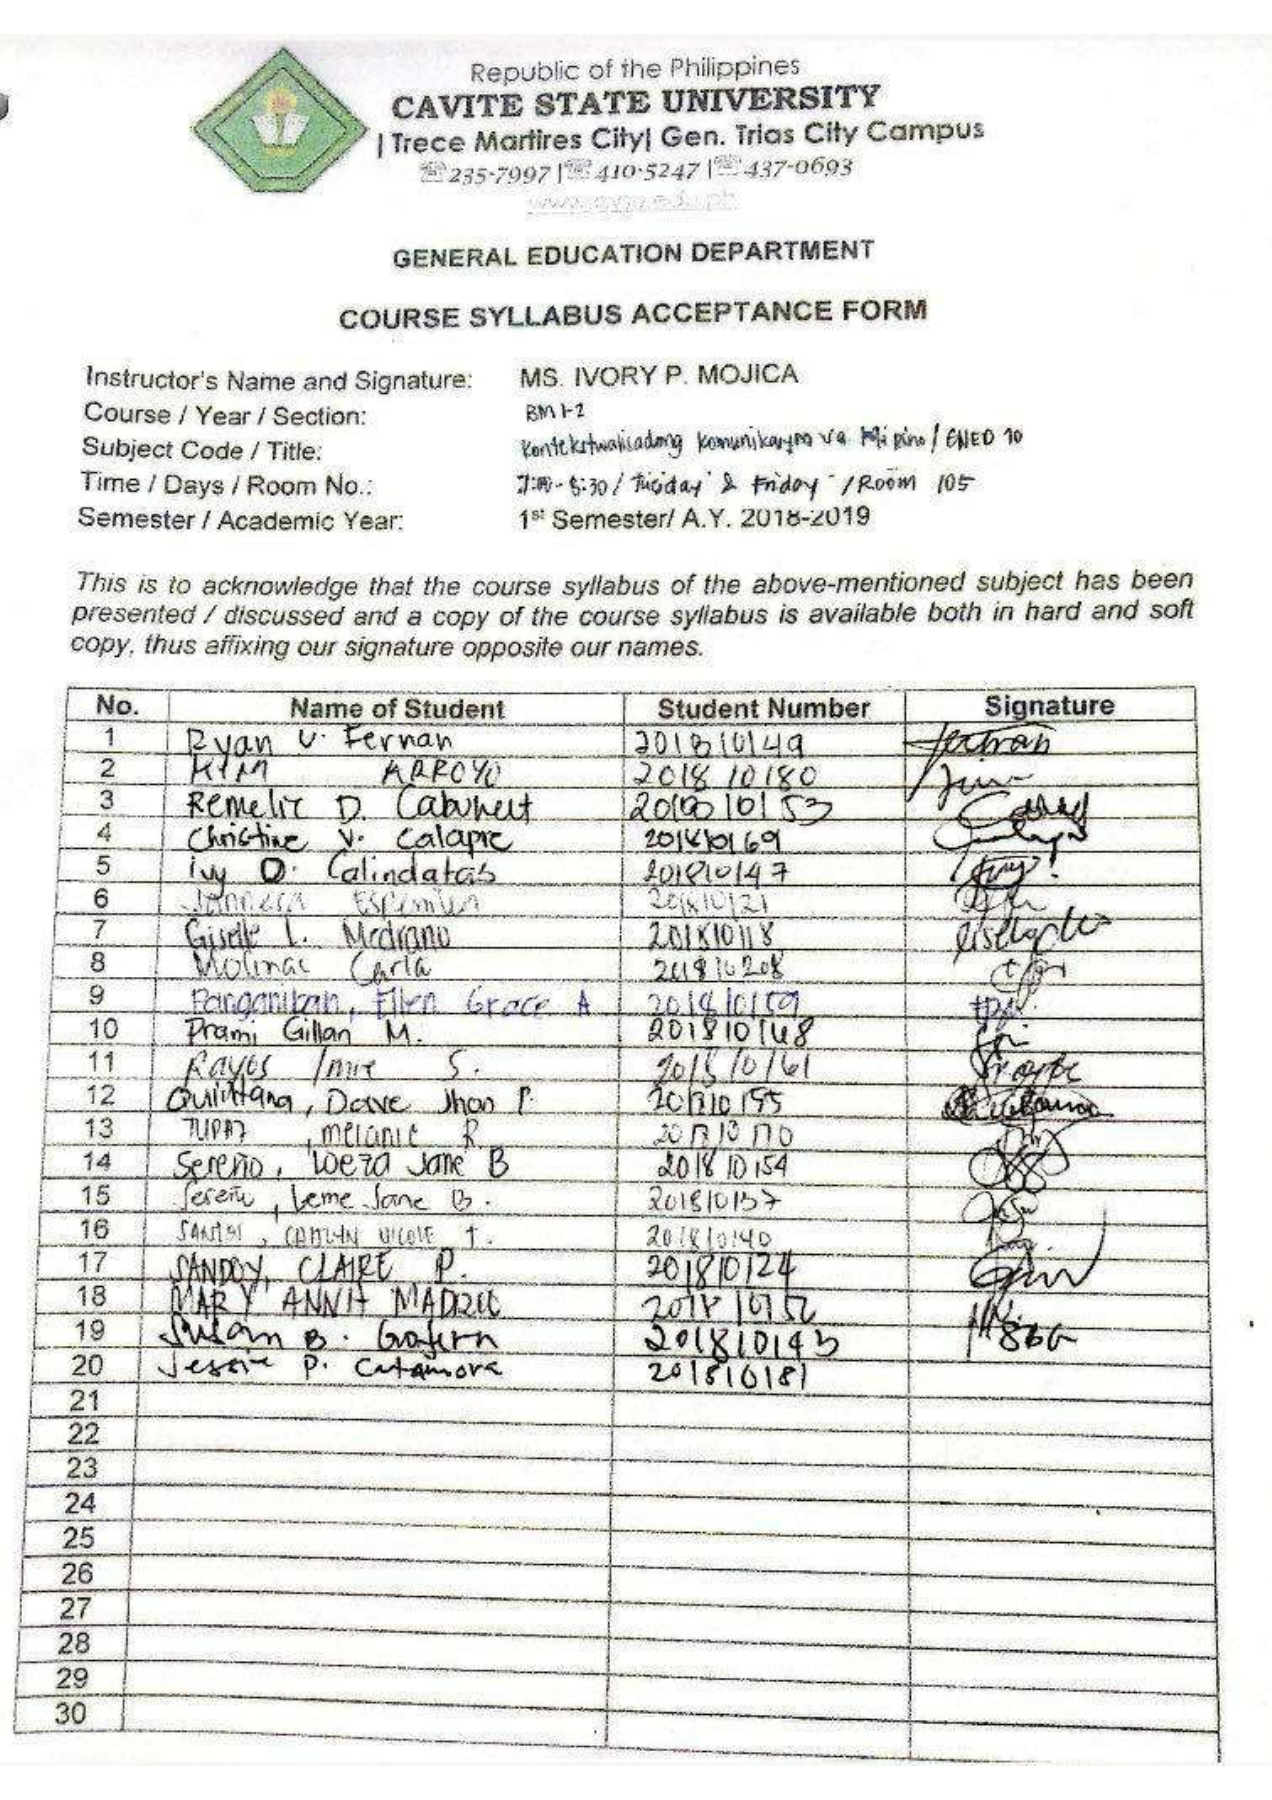 Republic of the Philippines
CAVITE STATE UNIVERSITY
| Trece Martires City| Gen. Trias City Campus
☏235-7997 |☏410-5247 |☏437-0693
GENERAL EDUCATION DEPARTMENT
COURSE SYLLABUS ACCEPTANCE FORM
Instructor's Name and Signature: MS. IVORY P. MOJICA
Course / Year / Section: BM 1-2
Subject Code / Title: Kontekstwalisadong Komunikasyon sa Filipino / GNED 10
Time / Days / Room No.: 7:00-8:30 / Tuesday & Friday / Room 105
Semester / Academic Year: 1st Semester/ A.Y. 2018-2019
This is to acknowledge that the course syllabus of the above-mentioned subject has been
presented / discussed and a copy of the course syllabus is available both in hard and soft
copy, thus affixing our signature opposite our names.
No. Name of Student Student Number Signature
1 Ryan V. Fernan 201810149
2 KIM ARROYO 201810180
3 Remelie D. 201810153
4 Christine V. Calapre 201810169
5 Ivy D. Calindatas 201810147
6 201810121
7 Giselle L. Medrano 201810118
8 Molinac Carla 201810208
9 Panganiban, Ellen Grace A 201810159
10 Prami Gillan M. 201810148
11 Rayos S. 201810161
12 Quintana, Dave Jhon P.
13 TUPAZ, Melanie R.
14 Sereño, Loeza Jane B 201810154
15 Sereño, Leme Jane B. 201810157
16 NICOLE T. 201810140
17 SANDOY, CLAIRE P. 201810124
18 MARY ANN 201810152
19 Susan B. 201810143 SBG
20 Jessie P. Catamora 201810181
21
22
23
24
25
26
27
28
29
30